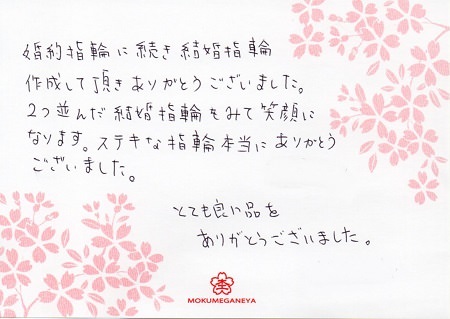 婚約指輪に続き結婚指輪
作成して頂きありがとうございました。
2つ並んだ結婚指輪をみて笑顔に
なります。ステキな指輪本当にありがとう
ございました。
とても良い品を
ありがとうございました。
MOKUMEGANEYA